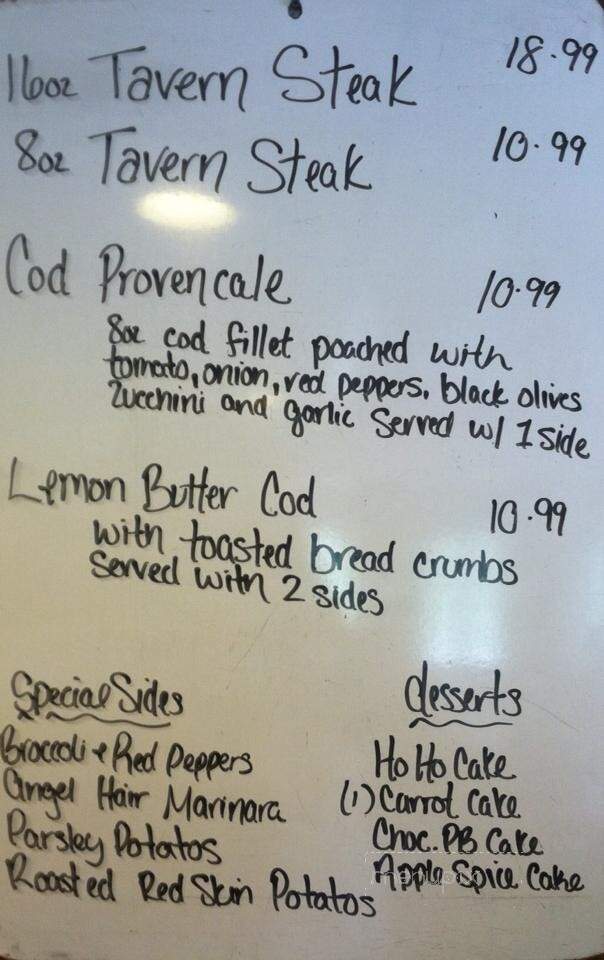 16oz Tavern Steak 18.99
8oz Tavern Steak 10.99
Cod Provencale 10.99
8oz cod fillet poached with
tomato, onion, red peppers, black olives
Zucchini and garlic Served w/ 1 side
Lemon Butter Cod 10.99
with toasted bread crumbs
Served with 2 sides
Special Sides
Broccoli & Red Peppers
Angel Hair Marinara
Parsley Potatos
Roasted Red Skin Potatos
desserts
Ho Ho Cake
(1) Carrot Cake
Choc. PB Cake
Apple Spice Cake